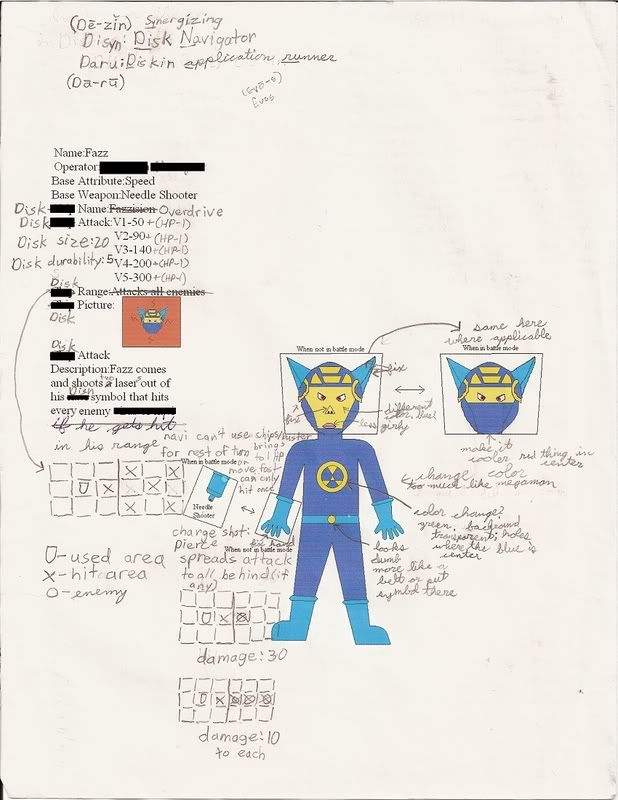 (Dē-zin) Synergizing
Disyn: Disk Navigator
Daru: Diskin application runner
(Da-rū)
Name:Fazz
Operator:
Base Attribute:Speed
Base Weapon:Needle Shooter
Disk Name:Fazzision Overdrive
Disk Attack:V1-50 +(HP-1)
Disk size:20 V2-90+(HP-1)
V3-140+(HP-1)
Disk durability:5 V4-200+(HP-1)
V5-300+(HP-1)
Disk Range:Attacks all enemies
Disk Picture:
Disk Attack
Description:Fazz comes
and shoots laser out of
his symbol that hits
every enemy
if he gets hit
in his range
navi can't use chips/buster
for rest of turn
brings
to 1 HP
move fast
can only
hit once
U-used area
x-hit area
O-enemy
When not in battle mode
fix
fix
different
less
girly
same here
where applicable
When in battle mode
make it
cooler
center
change color
too much like megaman
color change?
green, background
transparent, holes
where the blue is
center
looks
dumb
more like a
belt or put
symbol there
When in battle mode
Needle
Shooter
When not in battle mode
fix hand
charge shot:
pierce
spreads attack
to all behind (if
any)
damage:30
damage:10
to each